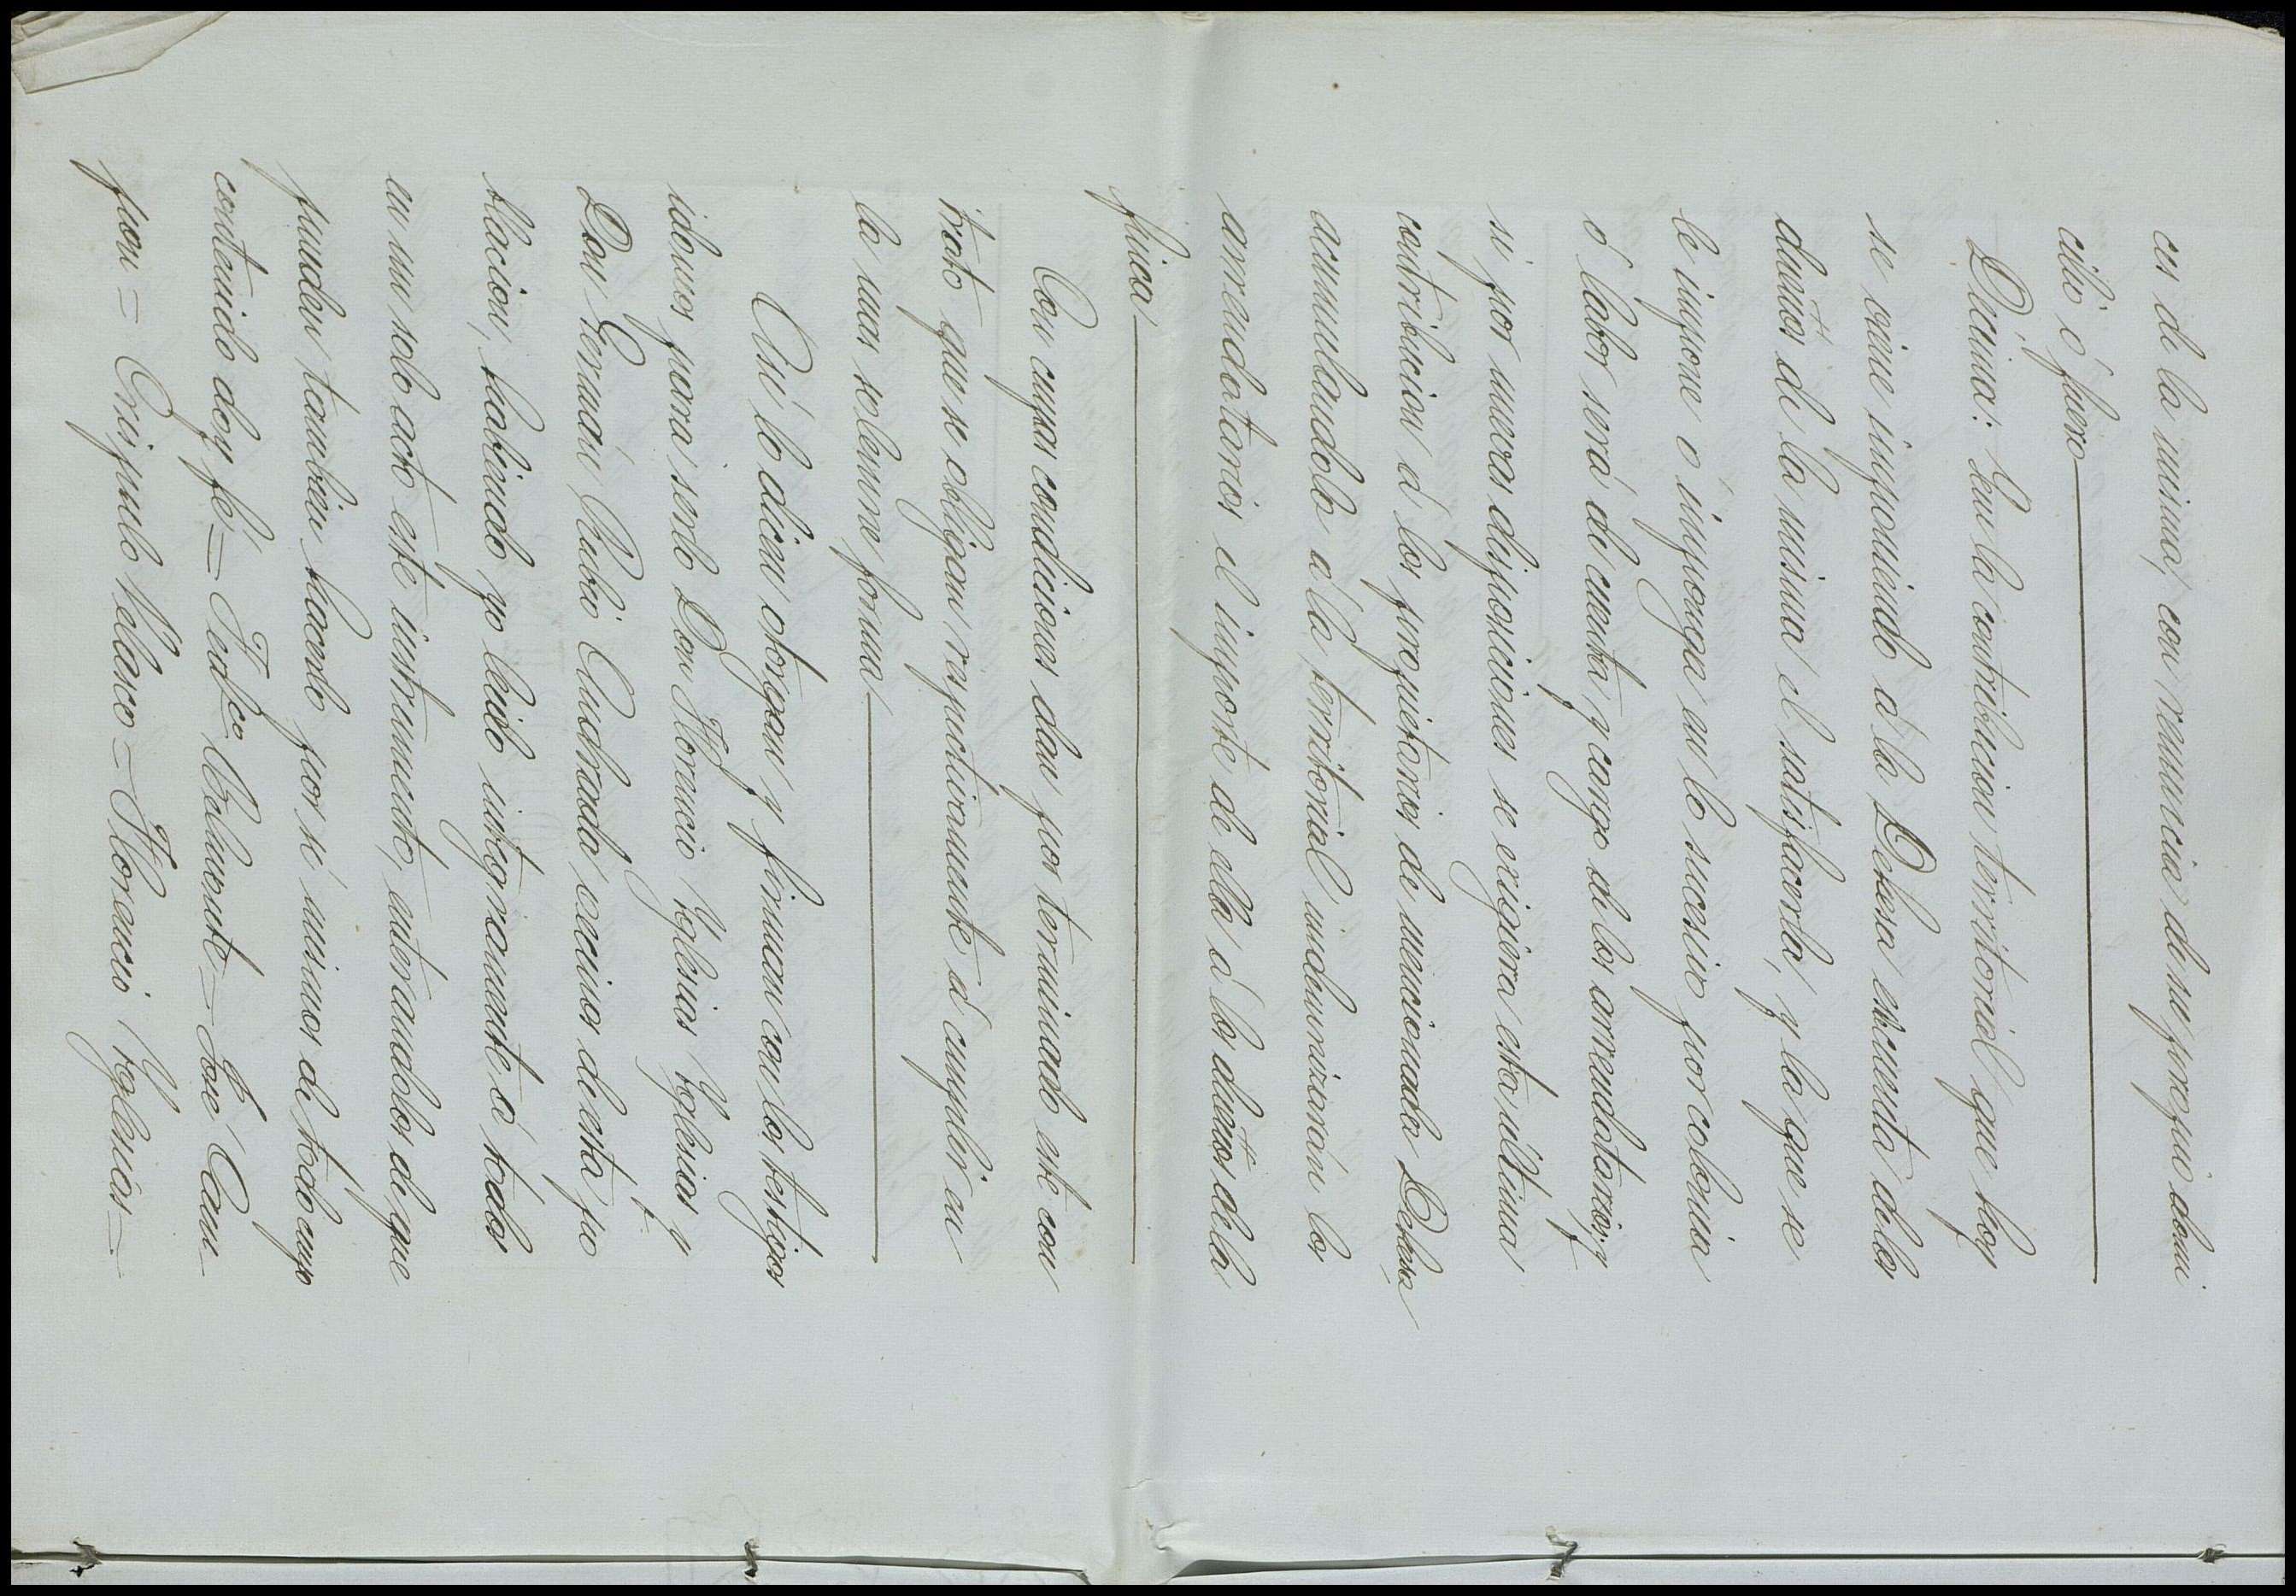 ces de la misma, con renuncia de su propio domi
cilio ó fuero
Décima: Que la contribucion territorial que hoy
se viene imponiendo á la Dehesa es cuenta de los
dueños de la misma el satisfacerla, y la que se
le impone ó imponga en lo sucesivo por colonia
ó labor será de cuenta y cargo de los arrendatarios; y
si por nuevas disposiciones se exigiera esta última
contribucion á los propietarios de mencionada Dehesa,
acumulandola á la territorial indemnizarán los
arrendatarios el importe de ella á los dueños de la
finca
Con cuyas condiciones dan por terminado este con
trato que se obligan respectivamente á cumplir en
la mas solemne forma
Así lo dicen otorgan y firman con los testigos
idoneos para serlo Don Florencio Yglesias Yglesias y
Don German Rubio Andrada vecinos de esta po
blacion, habiendo yo leido integramente á todos
en un solo acto este instrumento, enterandolos de que
pueden tambien hacerlo por sí mismos de todo cuyo
contenido doy fé = Franco Belmonte = José Cam
pon = Crispulo Velasco = Florencio Yglesias =